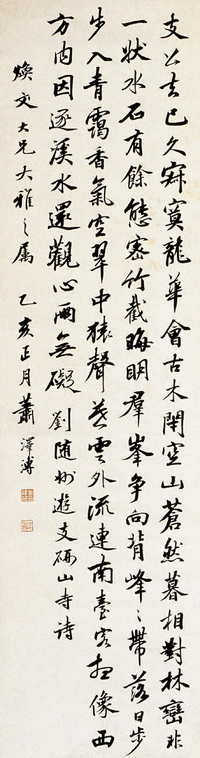 支公去已久寂寞龍華會古木閉空山蒼然暮相對林巒非
一狀水石有餘態密竹截晦明群峯争向背峰々帶落日步
步入青靄香氣空翠中猿聲暮雲外流連南臺客想像西
方内因逐溪水還觀心兩無礙 劉随州遊支硎山寺诗
煥文大兄大雅之屬 乙亥正月蕭